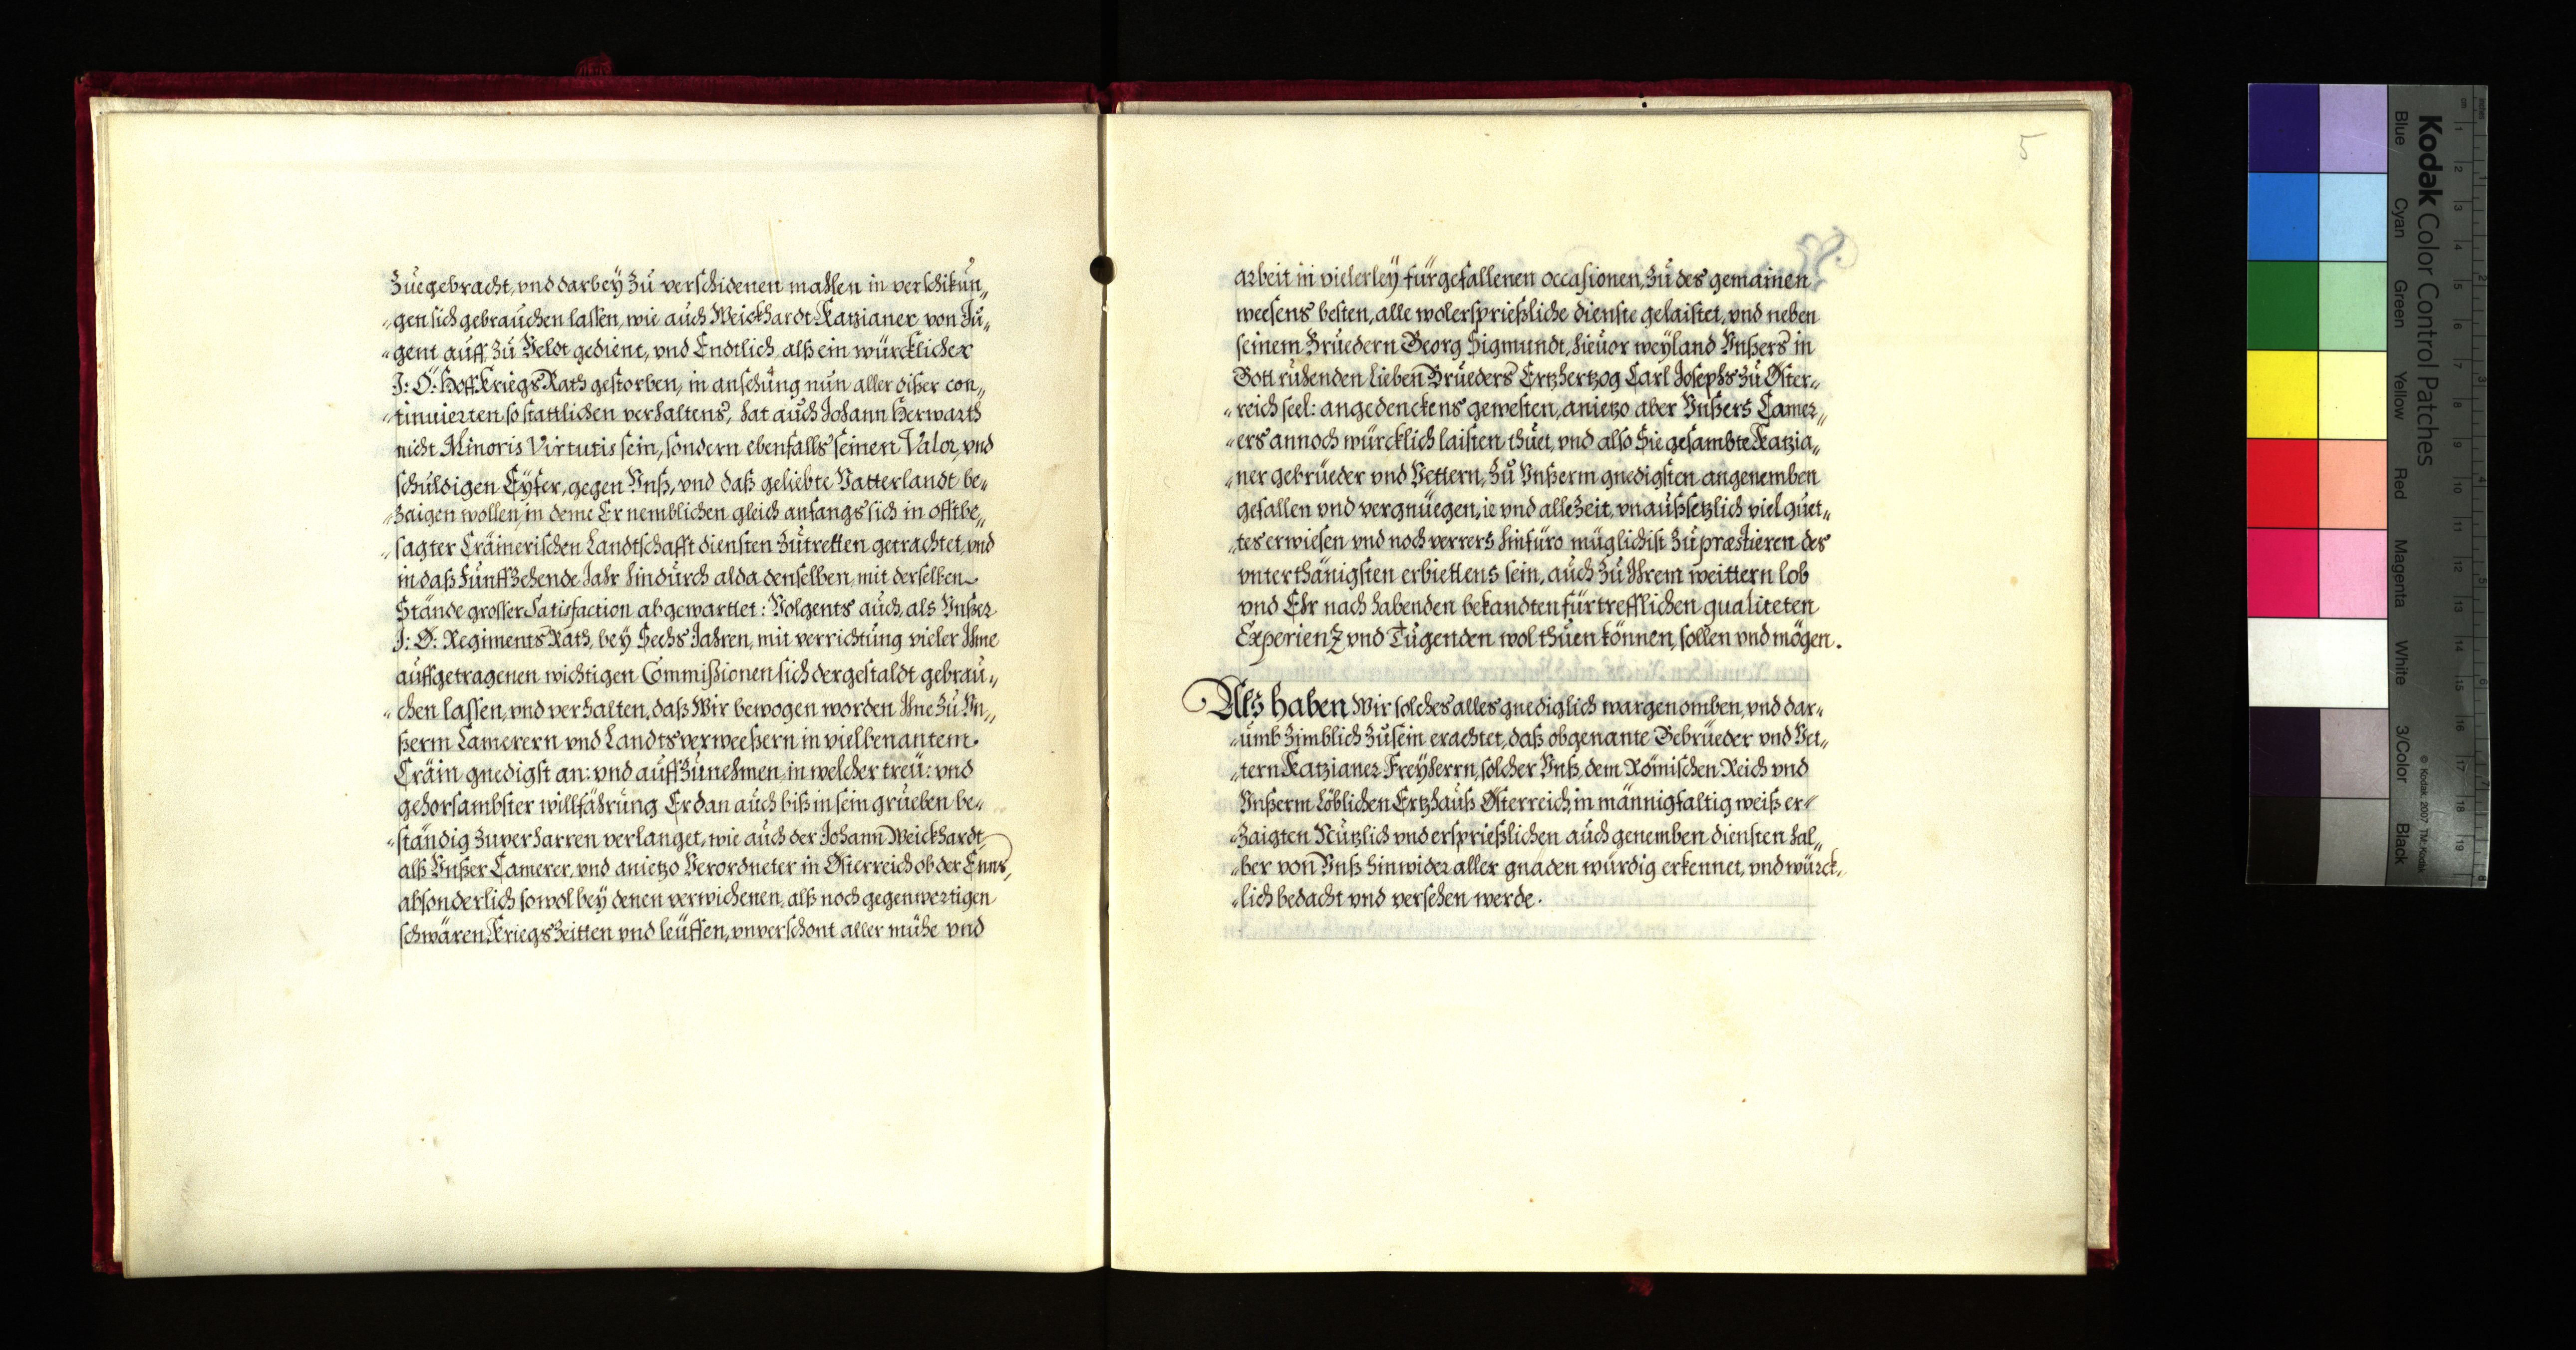 Zuegebracht, vnd darbeÿ Zu verschidenen mahlen in verschikun„
„gen sich gebrauchen lassen, wie auch Weickhardt Katzianer von Ju„
„gent auff Zu Veldt gedient, vnd Endtlich alß ein würcklicher
I: Ö: Hoff Kriegs Rath gestorben, in ansehung nun aller diser con„
„tinuierten so stattlichen verhaltens, hat auch Johann Herwarth
nicht Minoris Virtutis sein, sondern ebenfalls seinen Valor, vnd
schuldigen Eÿfer, gegen Vnß, vnd daß geliebte Vatterlandt be„
„Zaigen wollen, in deme Er nemblichen gleich anfangs sich in offtbe„
„sagter Cräinerischen Landtschafft diensten Zutretten getrachtet, vnd
in daß Funff Zehende Jahr hindurch alda denselben, mit derselben
Stände grosser Satisfaction abgewarttet: Volgents auch, als Vnßer
I: Ö: Regiments Rath, bey Sechs Jahren, mit verrichtung vieler Ihme
auffgetragenen wichtigen Commißionen sich dergestaldt gebrau„
„chen lassen, vnd verhalten, daß Wir bewogen worden Ihne Zu Vn„
ßerm Camerern vnd Landtsverweeßern in vielbenantem
Cräin gnedigst an: vnd auff Zunehmen, in welcher treü: vnd
gehorsambster willfährung Er dan auch biß in sein grueben be„
„ständig Zuverharren verlanget, wie auch der Johann Weickhardt,
alß Vnßer Camerer, vnd anietzo Verordneter in Österreich ob der Enns,
absonderlich sowol bey denen verwichenen, alß noch gegenwertigen
schwären Kriegs Zeitten vnd leüffen, vnverschont aller mühe vnd
5
arbeit in vielerleÿ fürgefallenen occasionen, Zu des gemainen
weesens besten, alle wolersprießliche dienste gelaistet, vnd neben
seinem Bruedern Georg Sigmundt, hieuor weÿland Vnßers in
Gott ruhenden lieben Brueders Ertzhertzog Carl Josephs Zu Öster„
„reich seel: angedenckens gewesten, anietzo aber Vnßers Camer„
„ers annoch würcklich laisten thuet, vnd also Sie gesambte Katzia„
„ner gebrüeder vnd Vettern, Zu Vnßerm gnedigsten angenemben
gefallen vnd vergnüegen, ie vnd alle Zeit, vnaußsetzlich viel guet„
„tes erwiesen vnd noch verrers hinfüro müglichist Zu præstieren des
vnterthänigsten erbiettens sein, auch Zu Ihrem weittern lob
vnd Ehr nach habenden bekandten fürtrefflichen qualiteten
Experienz vnd Tugenden wol thuen können, sollen vnd mögen.
Als haben Wir solches alles gnediglich wargenomben, vnd dar„
„umb Zimblich Zusein erachtet, daß obgenante Gebrüeder vnd Vet„
„tern Katzianer Freÿherrn, solcher Vnß, dem Römischen Reich vnd
Vnßerm löblichen Ertzhauß Österreich, in männigfaltig weiß er„
„Zaigten Neutzlich vnd ersprießlichen auch genemben diensten hal„
„ber von Vnß hinwider aller gnaden würdig erkennet, vnd würck„
„lich bedacht vnd versehen werde.
Kodak Color Control Patches
Blue Cyan Green Yellow Red Magenta White 3/Color Black
© Kodak, 2007 TM: Kodak